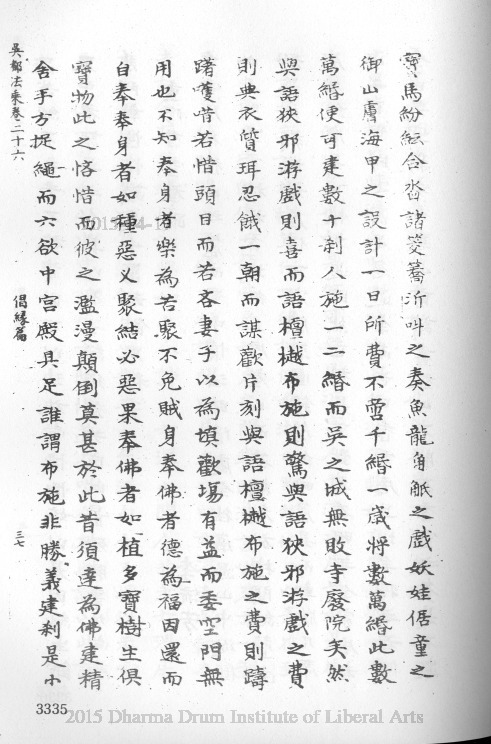 寶馬紛紜合沓諸筊簫沂呌之奏魚龍角觝之戲妖娃倨童之
御山膚海甲之設計一日所費不啻千緡一歲將數萬緡此數
萬緡便可建數十剎人施一二緡而吳之城無敗寺廢院矣然
與語狹邪游戲則喜而語檀樾布施則驚與語狹邪游戲之費
則典衣質珥忍餓一朝而謀歡片刻與語檀樾布施之費則躊
躇嚄唶若惜頭目而若吝妻子以為塡歡場有益而委空門無
用也不知奉身者樂為苦聚不免賊身奉佛者德為福因還而
自奉奉身者如種惡乂聚結必惡果奉佛者如植多寶樹生俱
寶物此之恡惜而彼之濫漫顛倒莫甚於此昔須達為佛建精
舍手方捉繩而六欲中宮殿具足誰謂布施非勝義建剎是小
吳都法乘卷二十六
倡緣篇
三七
3335
2015 Dharma Drum Institute of Liberal Arts